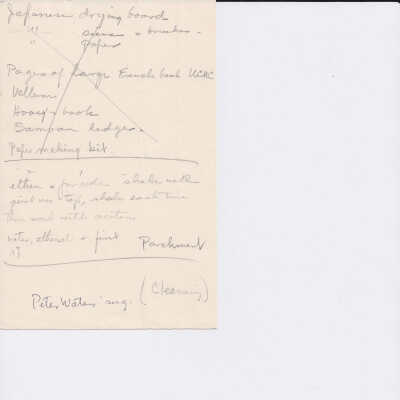 Japanese drying board
" " + brushes -
" Paper
Pages of large French book
Vellum
Hoag's book
Sampan ledger -
Paper making kit
ether + powder shake with
top, shake each time
then wash with acetone
water, ethanol +
Parchment
(Cleaning)
Peter Waters' sug.